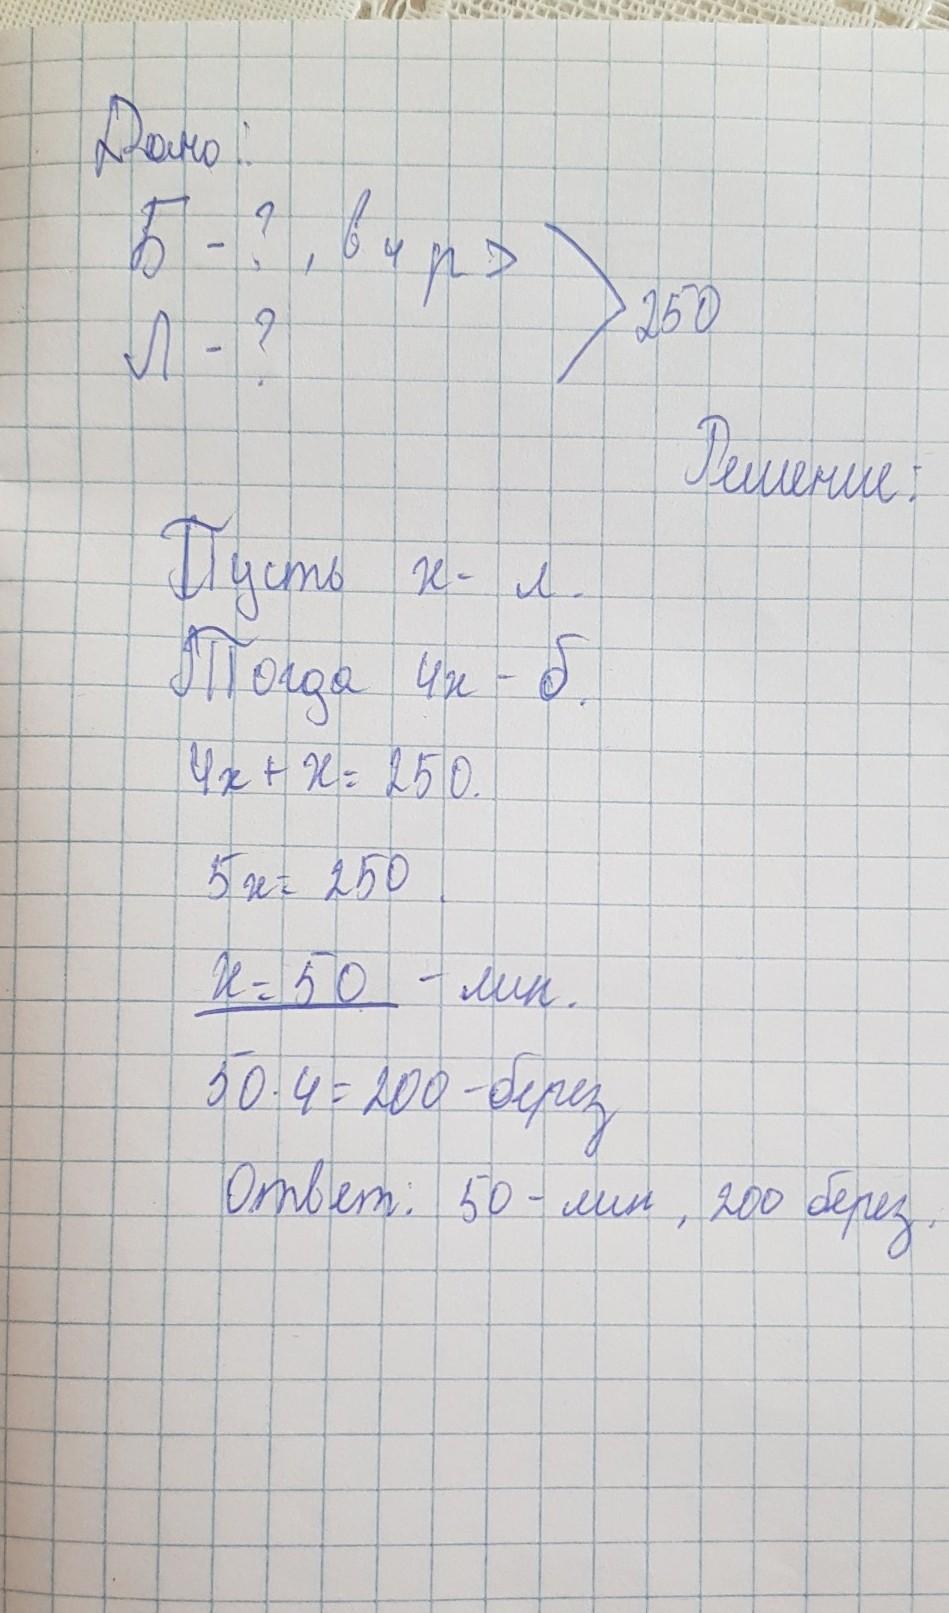 Дано:
Б - ?, в 4 р >
Л - ?
250
Решение:
Пусть x - л.
Тогда 4x - б.
4x + x = 250.
5x = 250.
x = 50 - лип.
50 · 4 = 200 - берез
Ответ: 50 - лип, 200 берез.